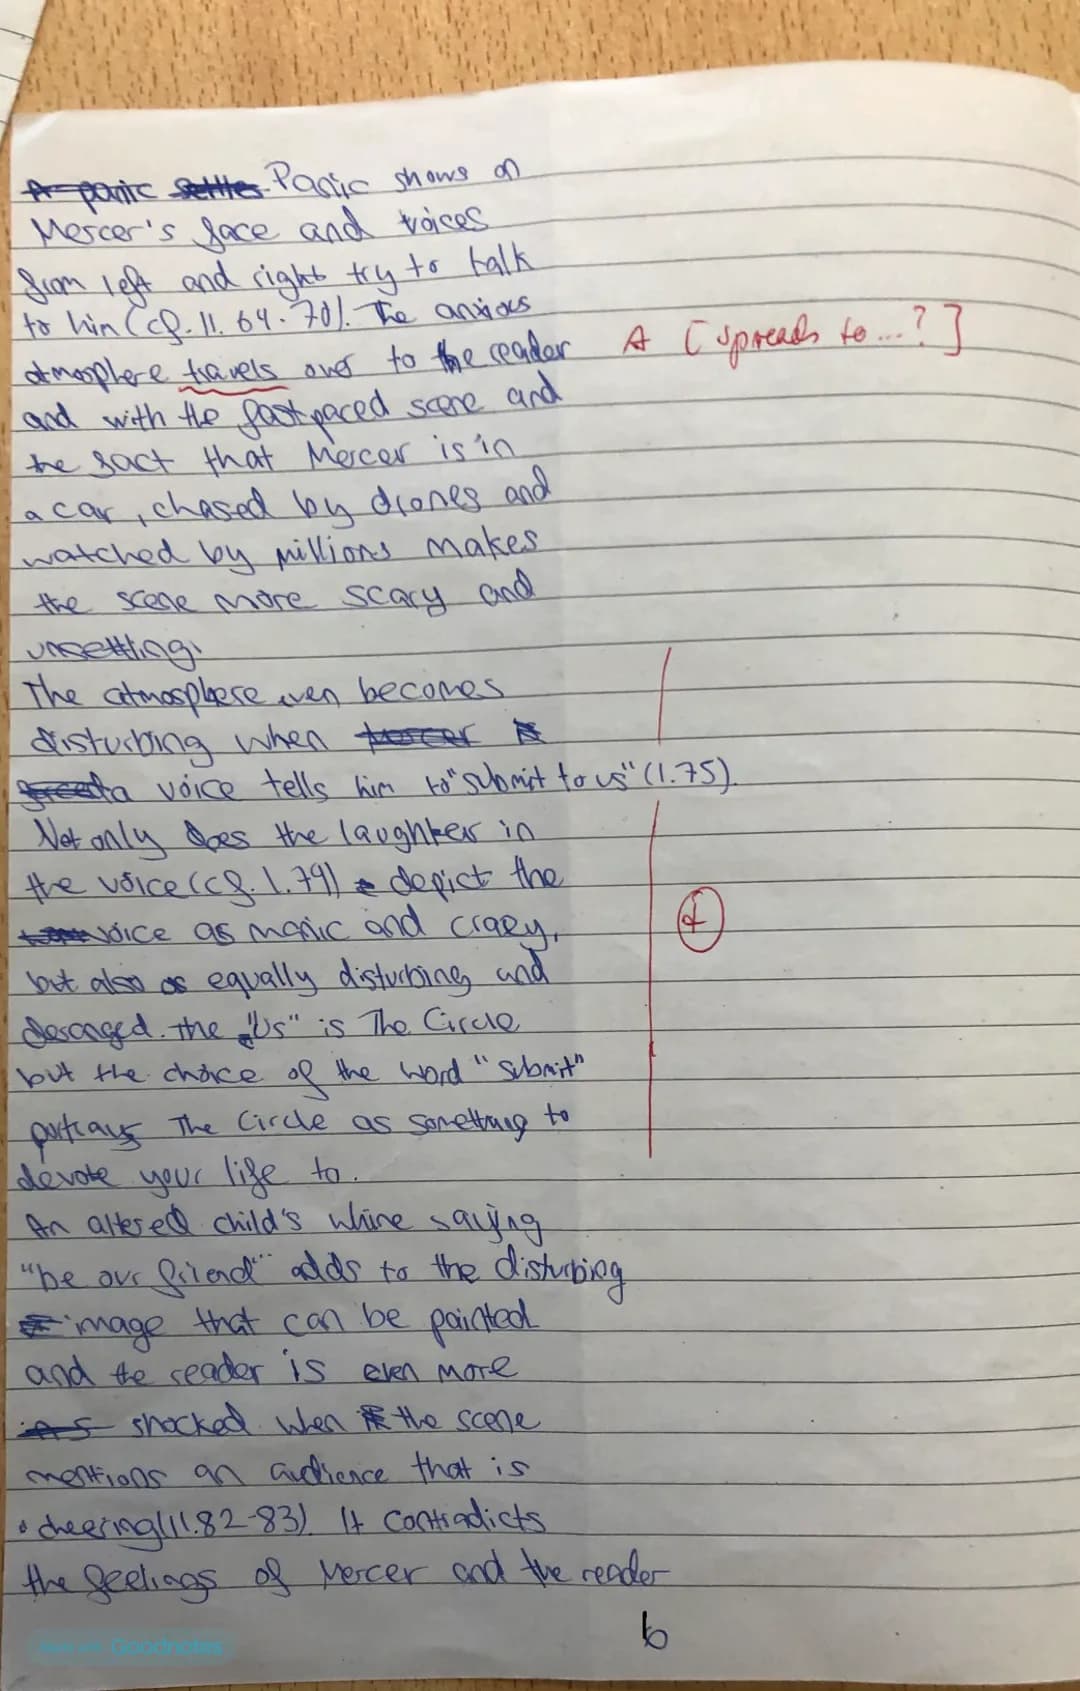 A panic settles Panic shows on
Mercer's face and voices
from left and right try to talk
to him (cf. ll. 64-70). The anxious
atmosphere travels over to the reader A [spreads to...?]
and with the fast paced scene and
the fact that Mercer is in
a car, chased by drones and
watched by millions makes
the scene more scary and
unsettling.
The atmosphere even becomes
disturbing when Mercer is
a voice tells him to "submit to us" (l.75).
Not only does the laughter in
the voice (cf. l.79) depict the
voice as manic and crazy,
but also as equally disturbing and
deranged. The "Us" is The Circle
but the choice of the word "submit"
portrays The Circle as something to
devote your life to.
An altered child's whine saying
"be our friend" adds to the disturbing
image that can be painted
and the reader is even more
shocked when the scene
mentions an audience that is
cheering (ll.82-83). It contradicts
the feelings of Mercer and the reader
6
Made with Goodnotes